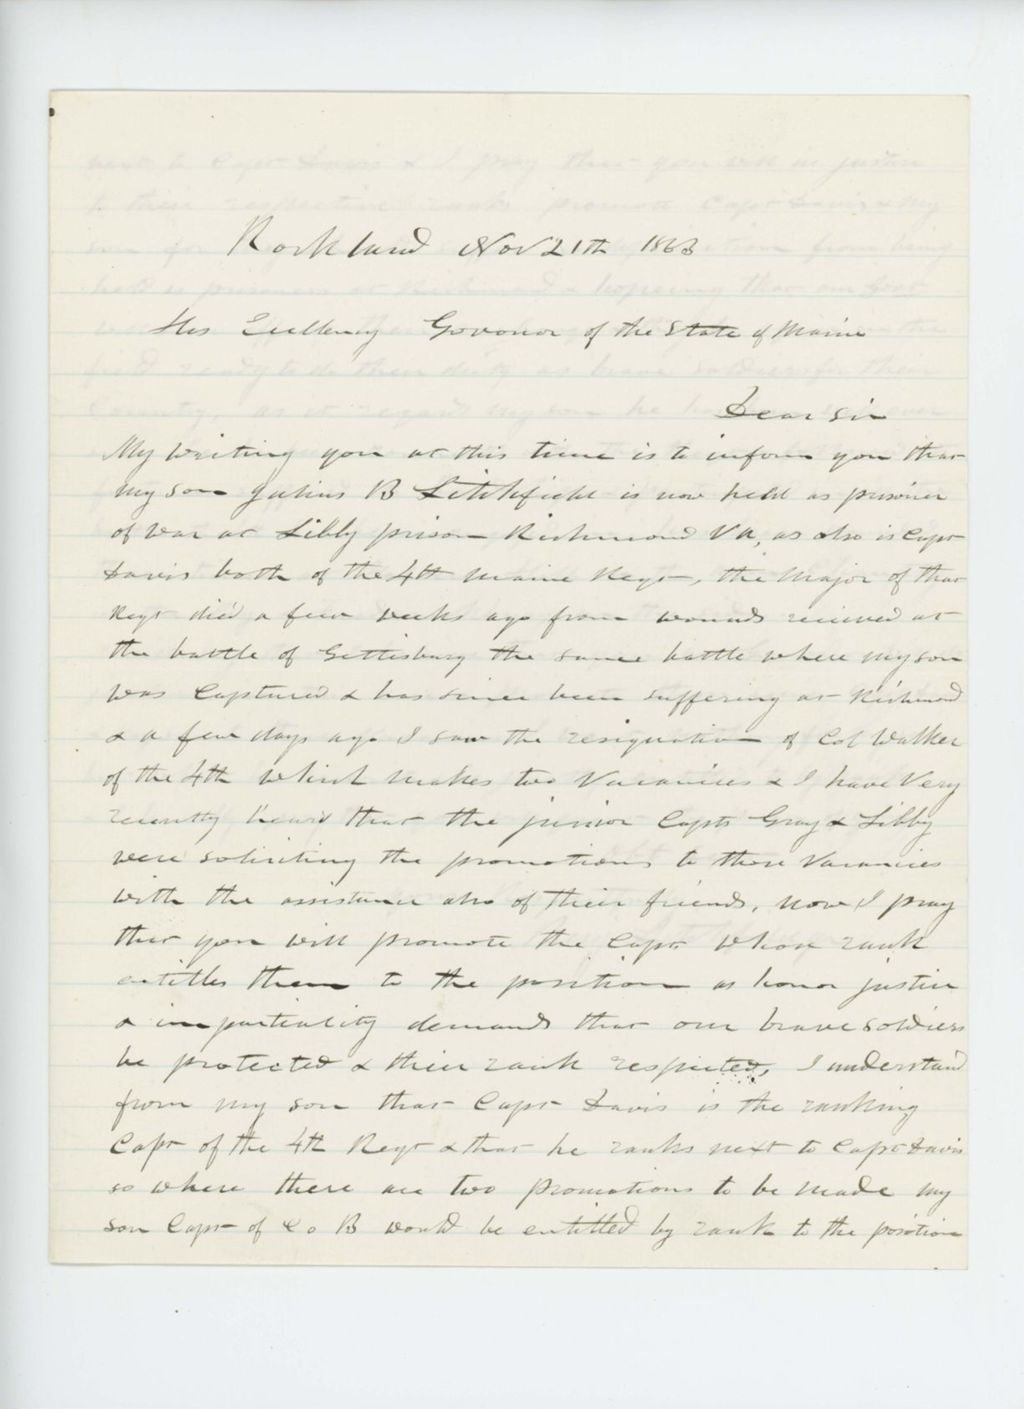 Rockland Nov 21th 1863
His Excellency Govonor of the State of Maine
Dear Sir
My writing you at this time is to inform you that
my son Julius B Litchfield is now held as prisoner
of war at Libby prison Richmond VA, as also is Capt
Davis both of the 4th Maine Regt, the Major of that
Regt died a few weeks ago from wounds received at
the battle of Gettisburg the same battle where my son
was Captured & has since been suffering at Richmond
& a few days ago I saw the resignation of Col Walker
of the 4th which makes two Vacancies & I have Very
recently heard that the junior Capts Gray & Libby
were soliciting the promotions to these Vacancies
with the assistance also of their friends, now I pray
that you will promote the Capts whose rank
entitles them to the position as honor justice
& impartiality demands that our brave soldiers
be protected & their rank respected, I understand
from my son that Capt Davis is the ranking
Capt of the 4th Regt & that he ranks next to Capt Davis
so where there are two promotions to be made my
son Capt of Co B would be entitled by rank to the position